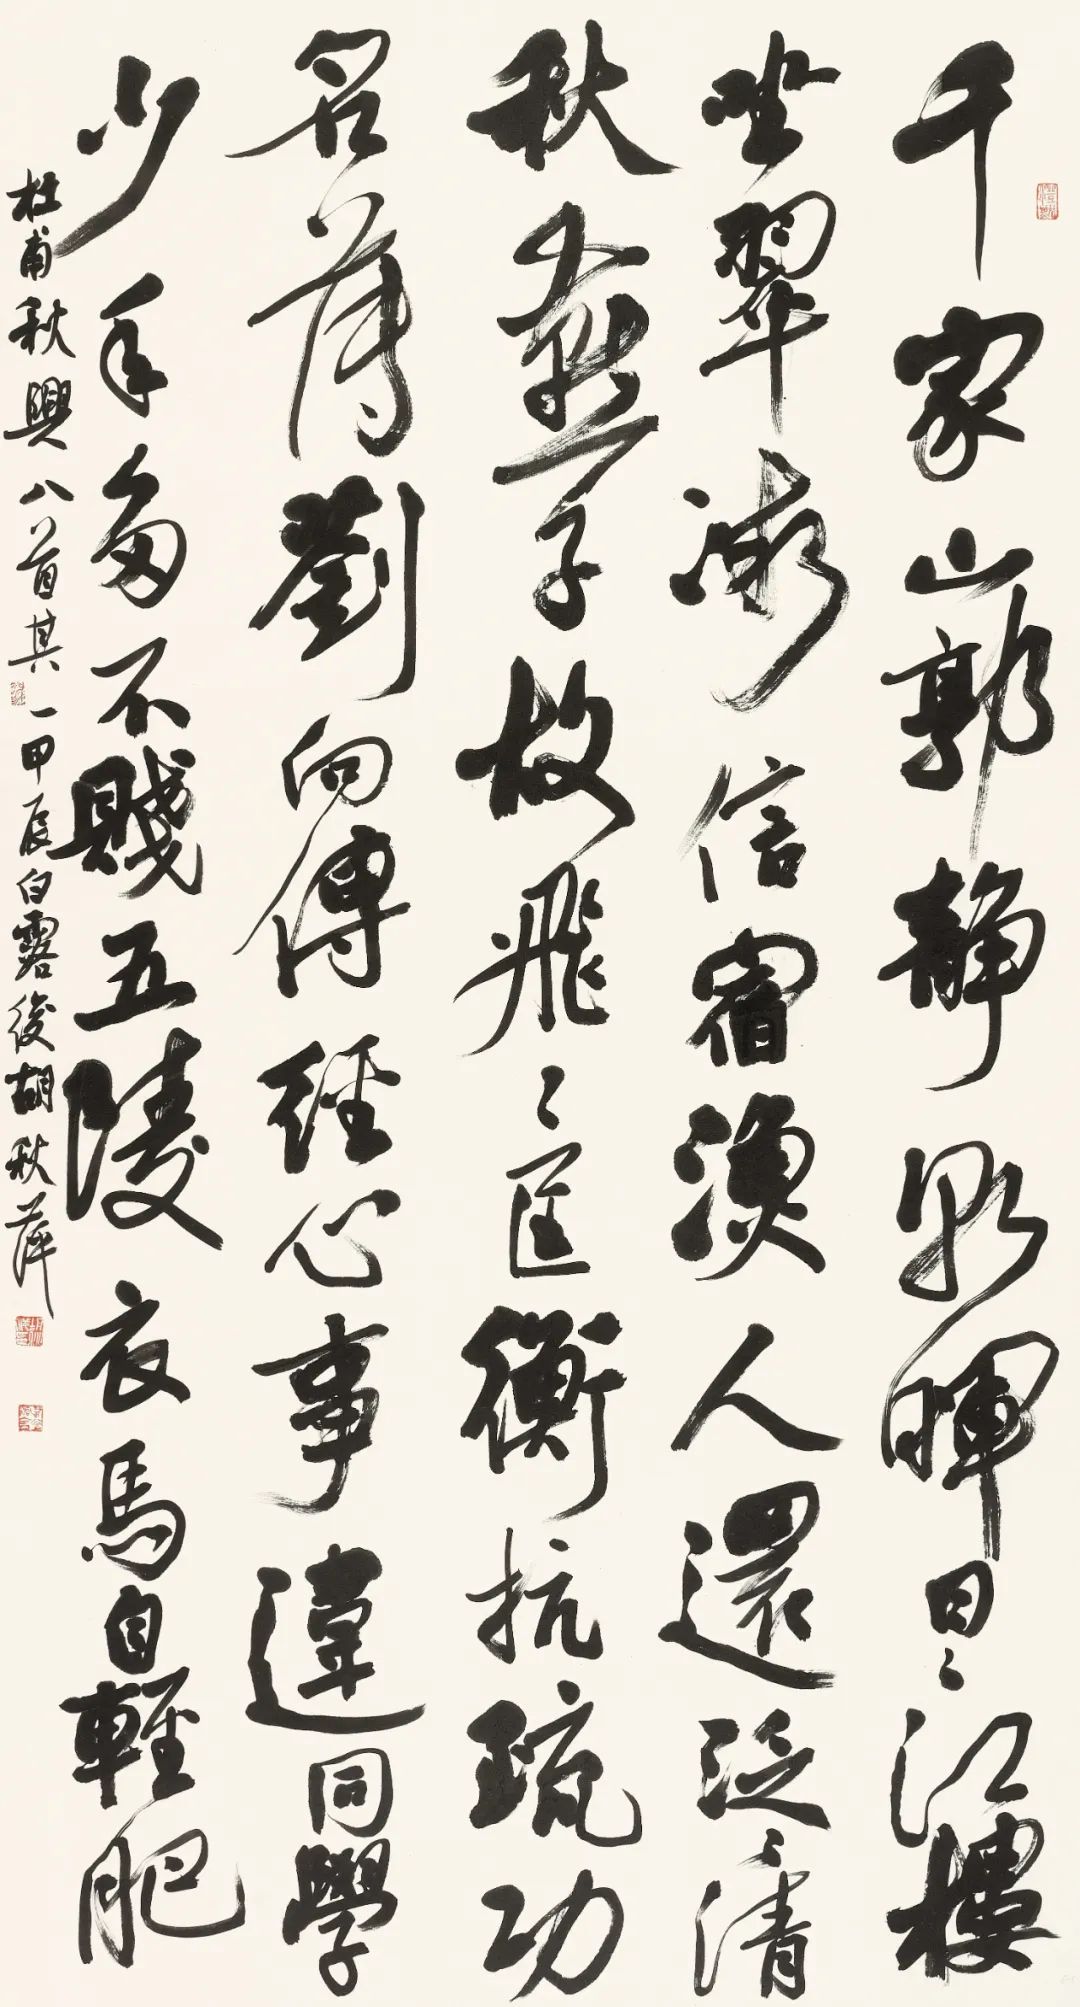 千家山郭静朝暉日〻江樓
坐翠微信宿漁人還泛〻清
秋燕子故飛〻匡衡抗疏功
名薄劉向傳經心事違同學
少年多不賤五陵衣馬自輕肥
杜甫秋興八首其一甲辰白露後胡秋萍